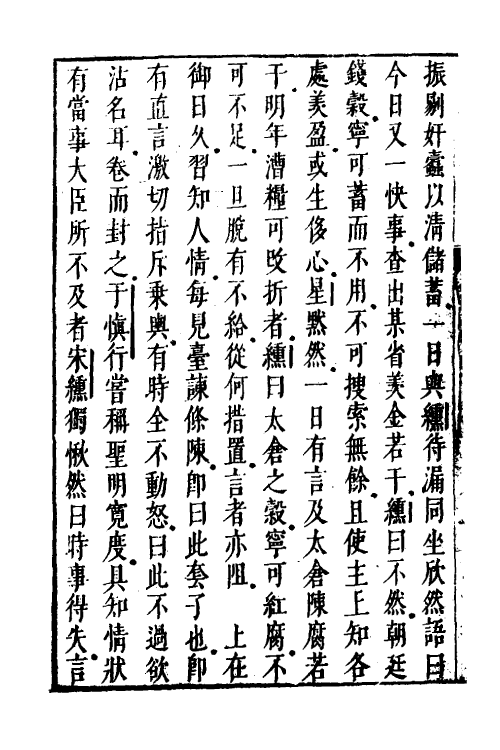 振剔奸蠹以清儲蓄一日與纁待漏同坐欣然語曰
今日又一快事查出某省羡金若干纁曰不然朝廷
錢穀寧可蓄而不用不可搜索無餘且使主上知各
處羡盈或生侈心星黙然一日有言及太倉陳腐若
于明年漕糧可改折者纁曰太倉之穀寧可紅腐不
可不足一旦脫有不給從何措置言者亦阻　上在
御日久習知人情每見臺諫條陳卽曰此套子也卽
有直言激切指斥乗輿有時全不動怒曰此不過欲
沽名耳卷而封之于愼行嘗稱聖明寛度具知情狀
有當事大臣所不及者宋纁獨愀然曰時事得失言